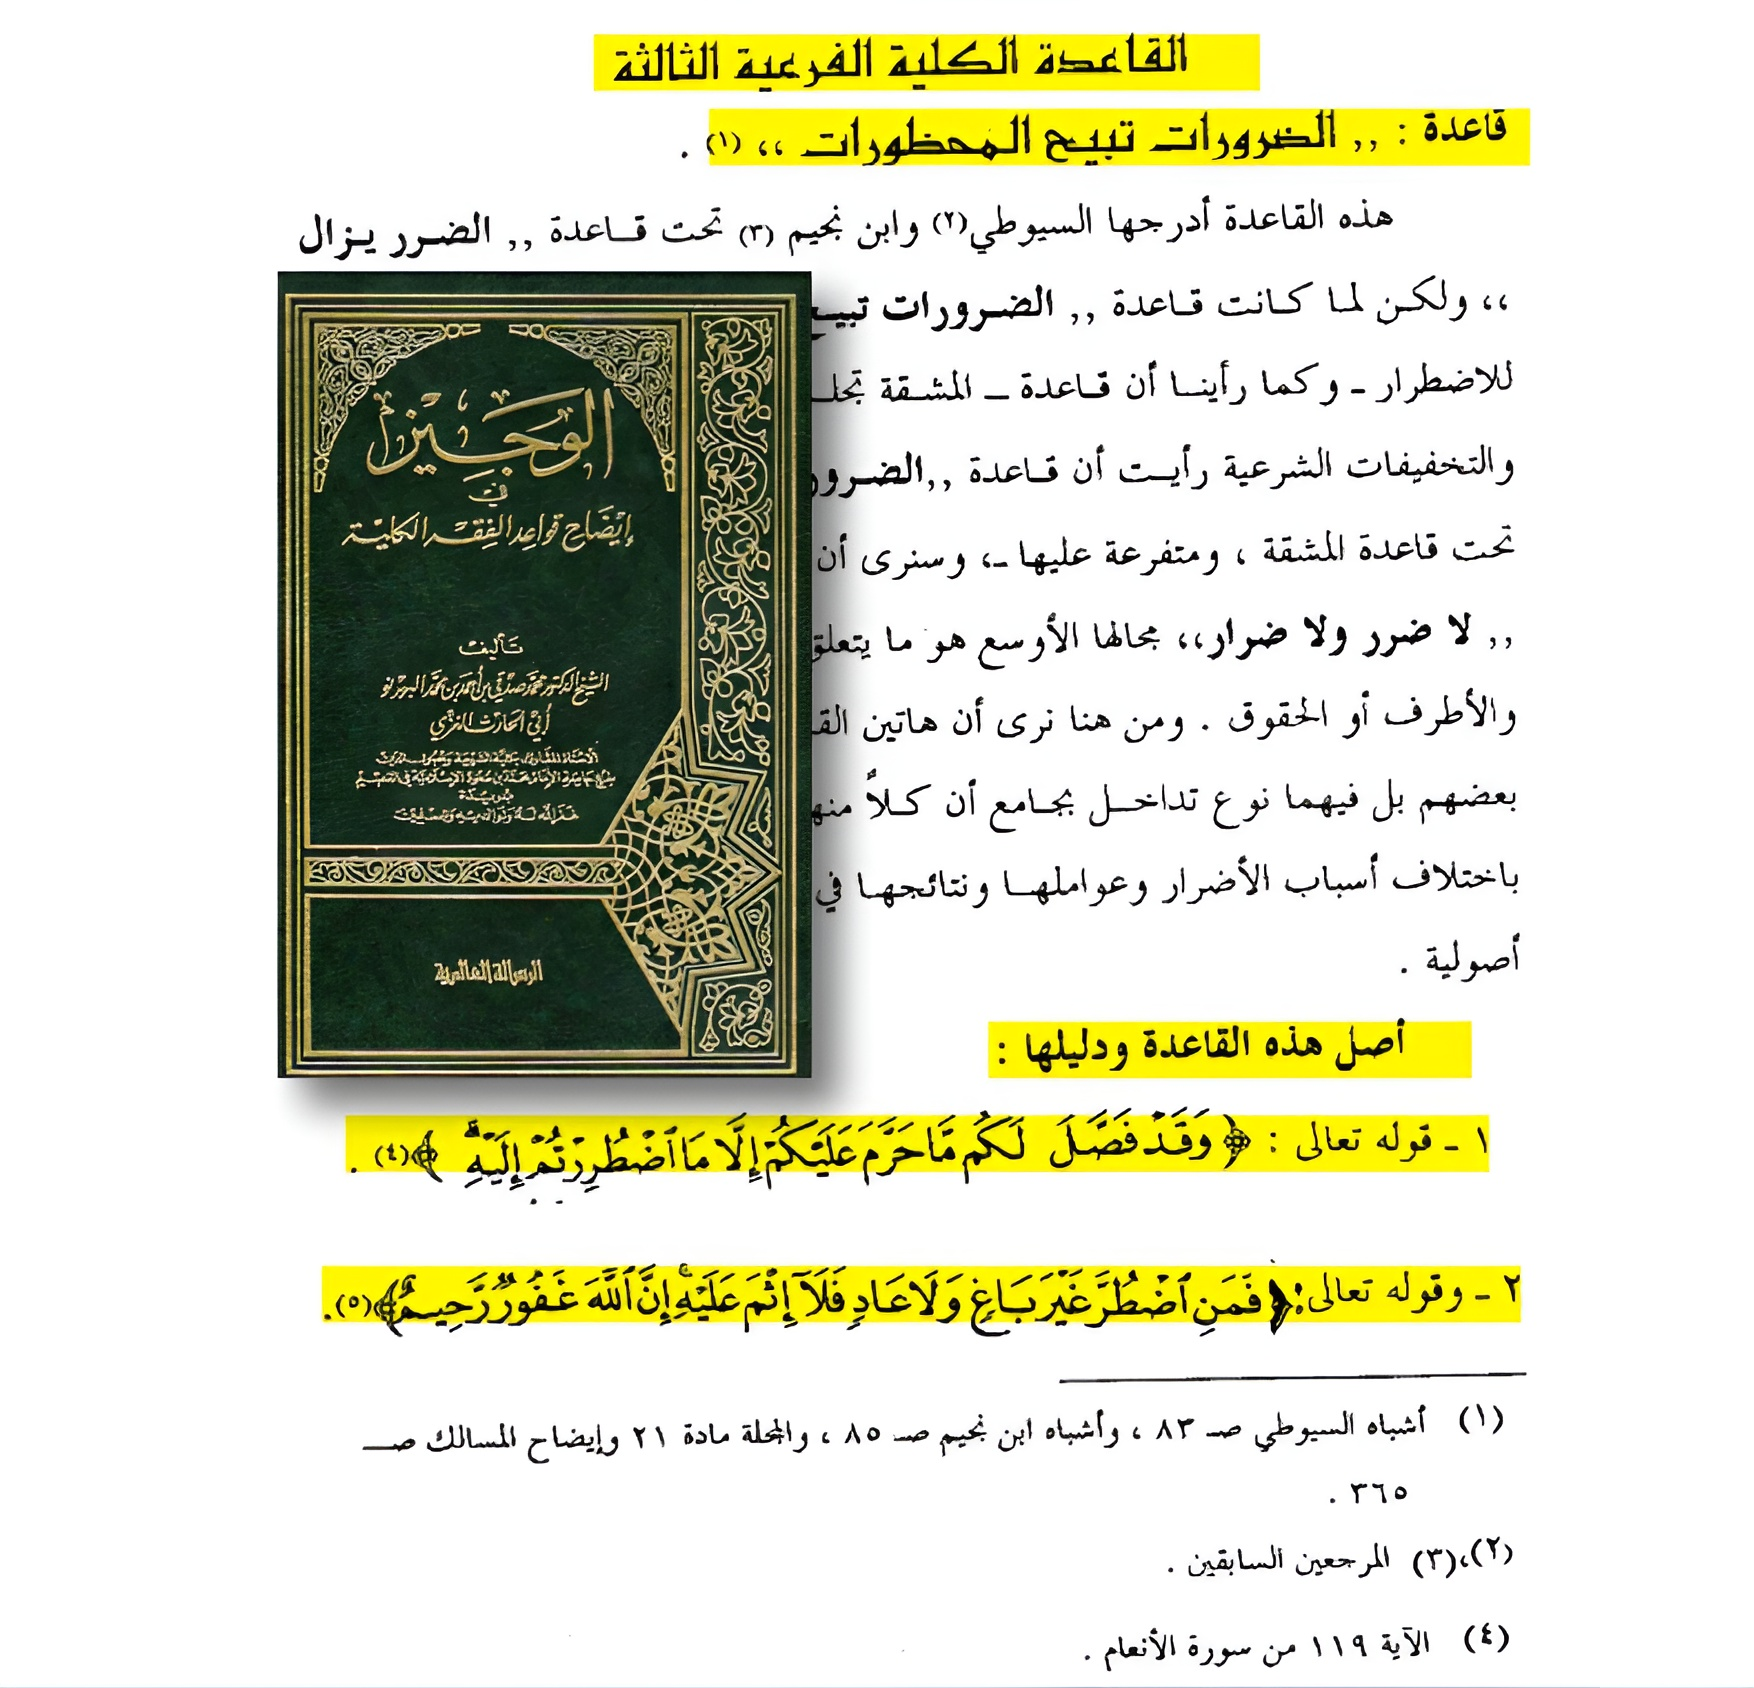 القاعدة الكلية الفرعية الثالثة
قاعدة : ,, الضرورات تبيح المحظورات ،، (١) .
هذه القاعدة أدرجها السيوطي(٢) وابن نجيم (٣) تحت قاعدة ,, الضرر يزال
،، ولكن لما كانت قاعدة ,, الضرورات تبيح
للاضطرار ـ وكما رأينا أن قاعدة ـ المشقة
والتخفيفات الشرعية رأيت أن قاعدة ,,
تحت قاعدة المشقة ، ومتفرعة عليها ـ، وسنرى أن
,, لا ضرر ولا ضرار،، مجالها الأوسع هو ما يتعلق
والأطرف أو الحقوق . ومن هنا نرى أن هاتين
بعضهم بل فيهما نوع تداخل بجامع أن كلاً
باختلاف أسباب الأضرار وعواملها ونتائجها في
أصولية .
الوجيز
في
إيضاح قواعد الفقه الكلية
تأليف
الشيخ الدكتور محمد صدقي بن أحمد بن محمد البورنو
أبي الحارث الغزي
الرسالة العالمية
أصل هذه القاعدة ودليلها :
١ ـ قوله تعالى : ﴿ وَقَدْ فَصَّلَ لَكُم مَّا حَرَّمَ عَلَيْكُمْ إِلَّا مَا ٱضْطُرِرْتُمْ إِلَيْهِ ۗ ﴾(٤) .
٢ ـ وقوله تعالى: ﴿فَمَنِ ٱضْطُرَّ غَيْرَ بَاغٍ وَلَا عَادٍ فَلَآ إِثْمَ عَلَيْهِ ۚ إِنَّ ٱللَّهَ غَفُورٌ رَّحِيمٌ﴾(٥).
(١) أشباه السيوطي صـ ٨٣ ، وأشباه ابن نجيم صـ ٨٥ ، والمجلة مادة ٢١ وإيضاح المسالك صـ
٣٦٥ .
(٢)،(٣) المرجعين السابقين .
(٤) الآية ١١٩ من سورة الأنعام .